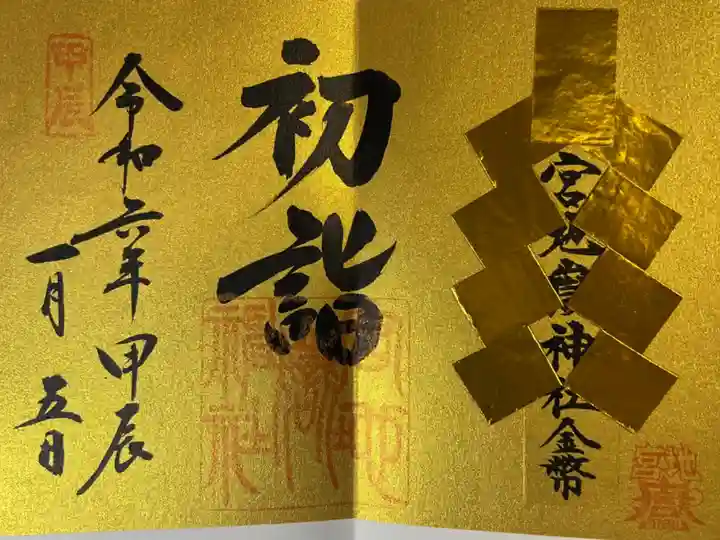 宮地嶽神社金幣
初詣
令和六年甲辰
一月五日
甲辰